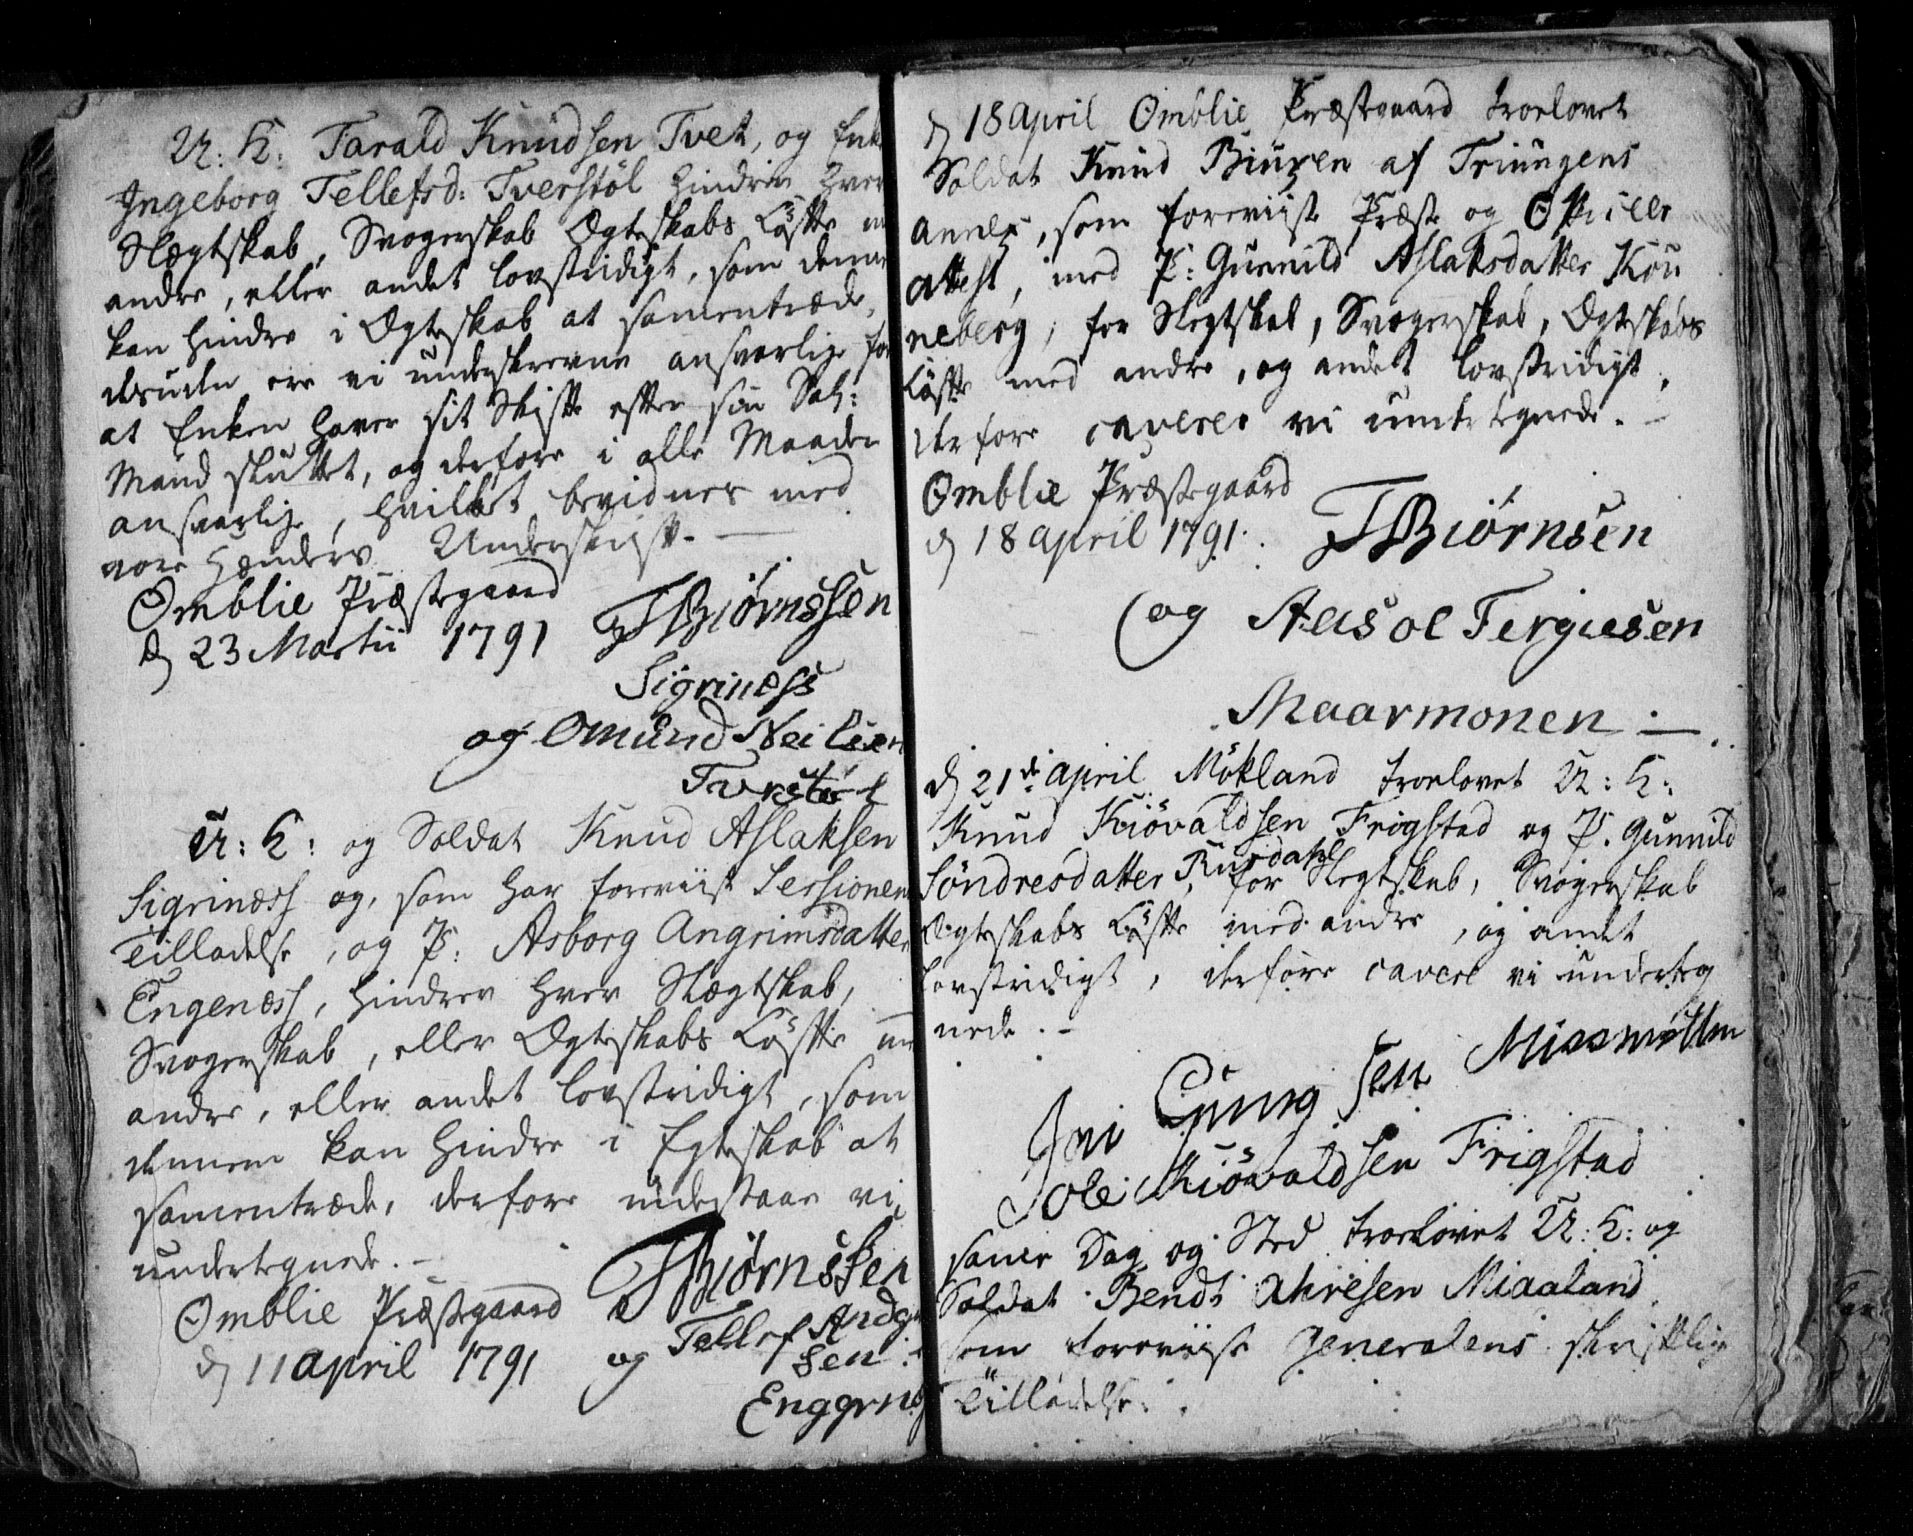 U: K: Tarald Knudsen Tvet, og Enke
Ingeborg Tellefsd: Tverstöl hindrer hver
Slægtskab, Svogerskab Ægteskabs Løfte m
andre, eller andet lovstridigt, som dennem
kan hindre i Ægteskab at samentræde,
desuden ere vi underskrevne ansvarlige for
at Enken haver sit Skifte efter sin Sal:
Mand sluttet, og derfore i alle Maader
ansvarlige, hvilket bevidnes med
vore Hænders Underskrift. —
Omblie Præstegaard
d 23 Martii 1791 TBiörnssen
Sigrinæss
og Omund Neilsen
Tverstöl
U: K: og Soldat Knud Aslaksen
Sigrinæss og, som har foreviist Sessionens
Tilladelse, og P: Asborg Angrimsdatter
Engenæss, hindrer hver Slægtskab,
Svogerskab, eller Ægteskabs Løfte m
andre, eller andet lovstridigt, som
dennem kan hindre i Egteskab at
samentræde, derfore indestaar vi
undertegnede. -
Omblie Præstegaard TBiørnssen
d 11 april 1791 og Tellef Andg
sen
d 18 april Omblie Præstegaard troelovet
Soldat Knud Biuren af Triungens
Annex, som foreviiste Præste og Officeer
attest, med P: Gunnild Aslaksdatter Kou
neberg, for Slegtskab, Svogerskab, Ægteskabs
Løfte med andre, og andet lovstridigt,
derfore caverer vi undertegnede. -
Omblie Præstegaard
d 18 april 1791. TBiörnsen
og Aasol Tergiesen
Maarmonen. —
d 21de april Mökland troelovet U: K:
Knud Kiövaldsen Frigstad og P. Gunnild
Söndresdatter Rusdahl, for Slegtskab, Svogerskab
Ægteskabs Løfte med andre, og andet
lovstridigt, derfore cavere vi underteg
nede. -
Ole Kiövaldsen Frigstad
samme Dag og Sted troelovet U: K: og
Soldat Bendt Ahresen Miaaland
som foreviiste Generalens skriftlig
Tilladelse.